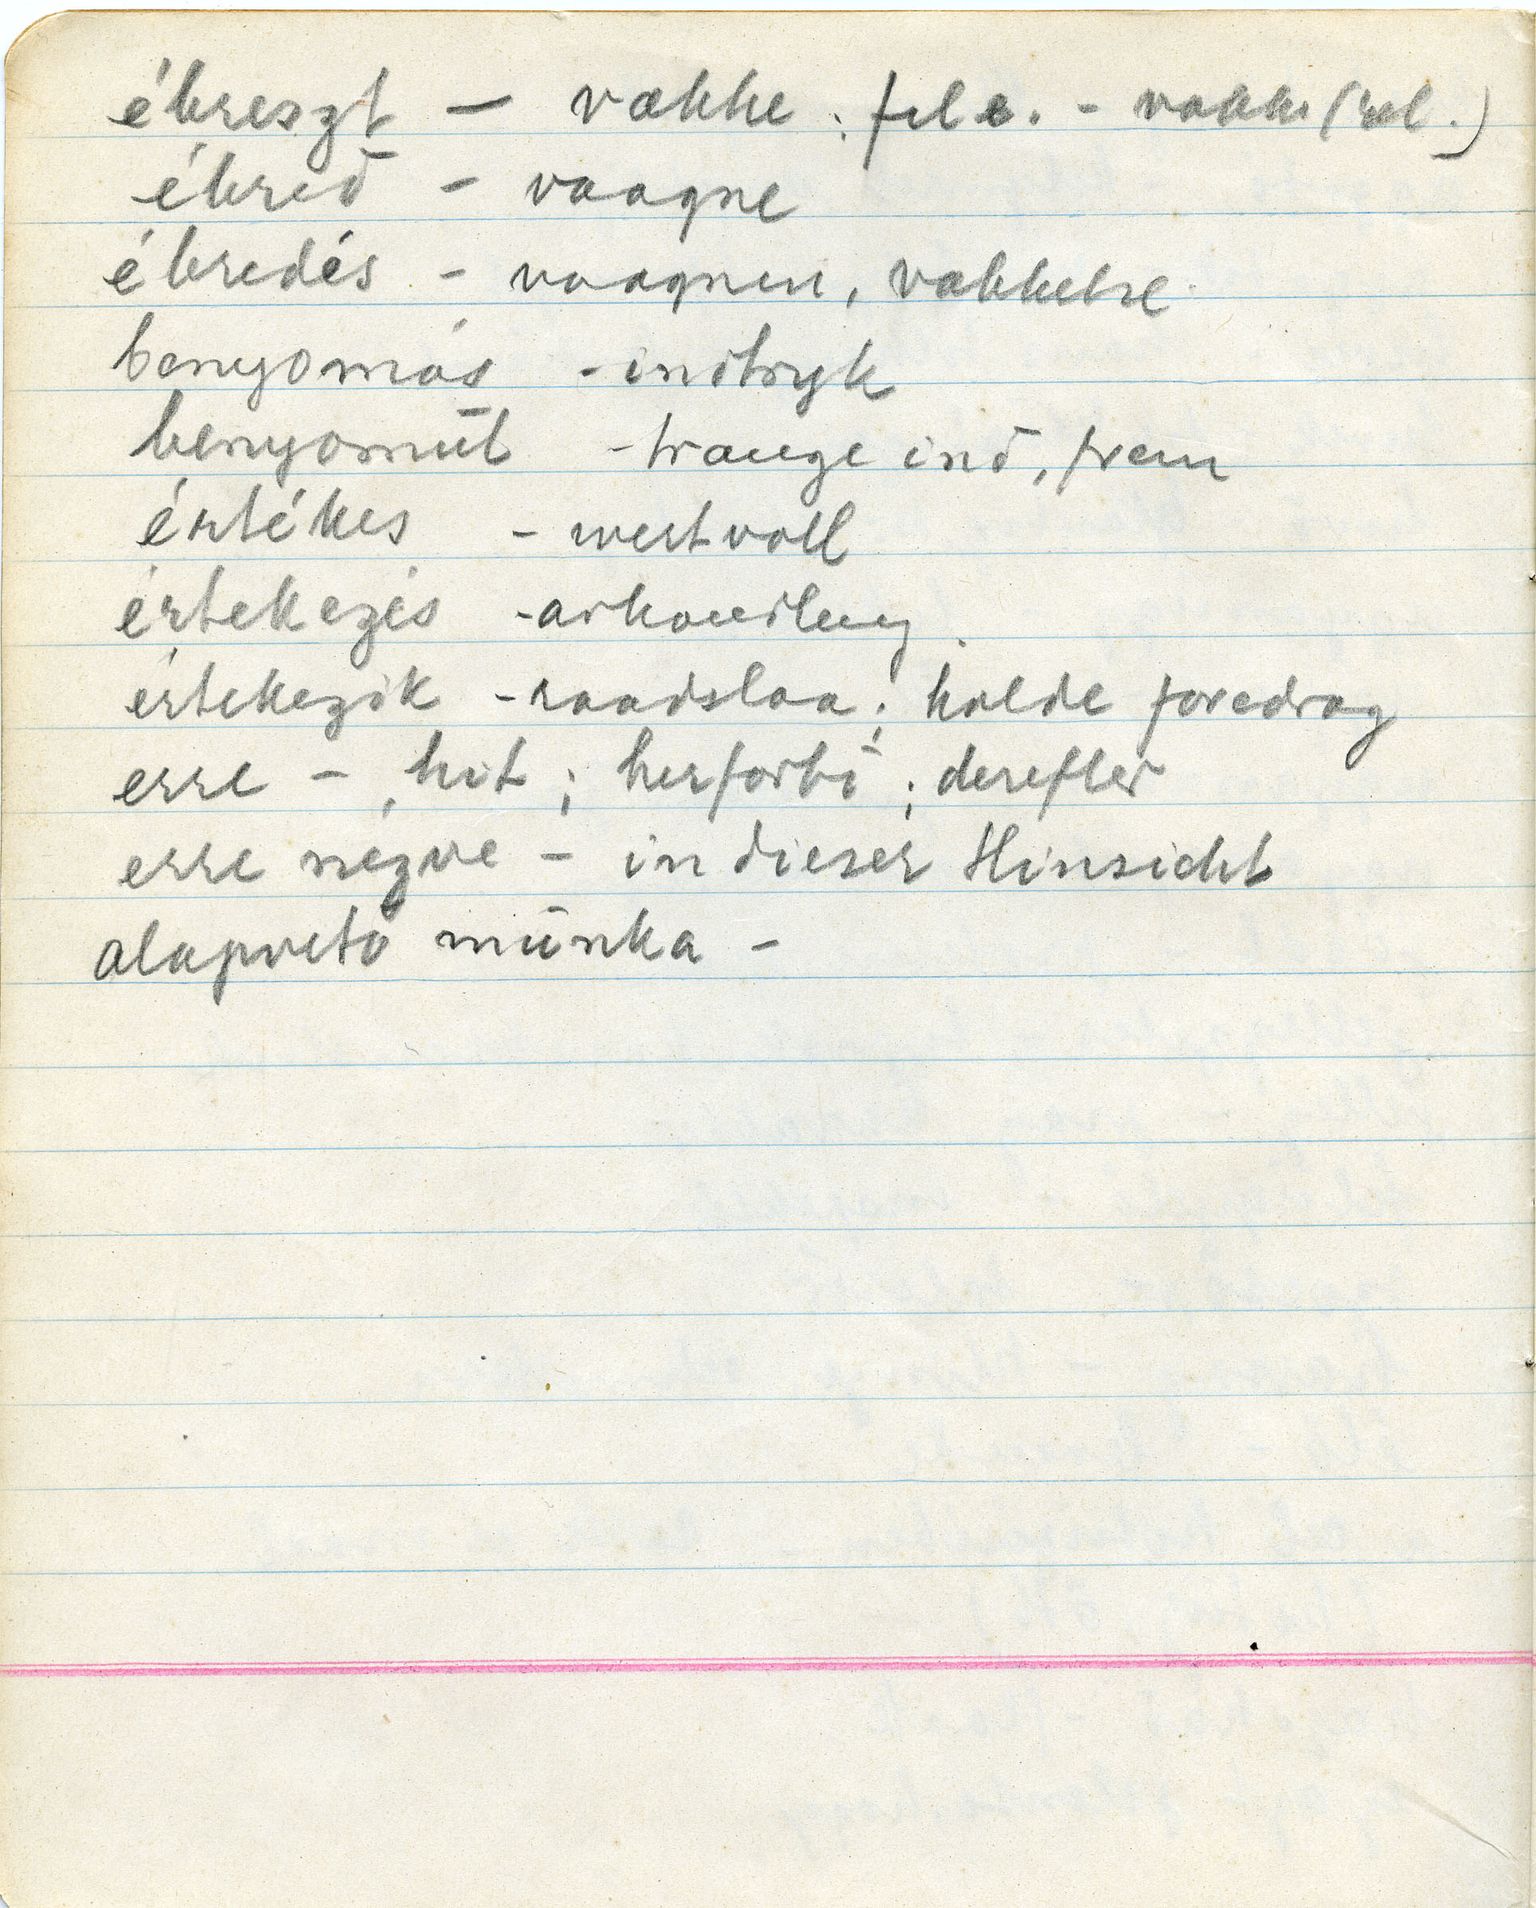 ébreszt – vække : fel e. – vække (rel.)
ébred – vaagne
ébredés – vaagnen, vækkelse
benyomás – indtryk
benyomúl – trænge ind, frem
értékes – wertvoll
értekezés – avhandling
értekezik – raadslaa ; holde foredrag
erre – , hit ; herforbi ; derefter
erre nézve – in dieser Hinsicht
alapvető münka –